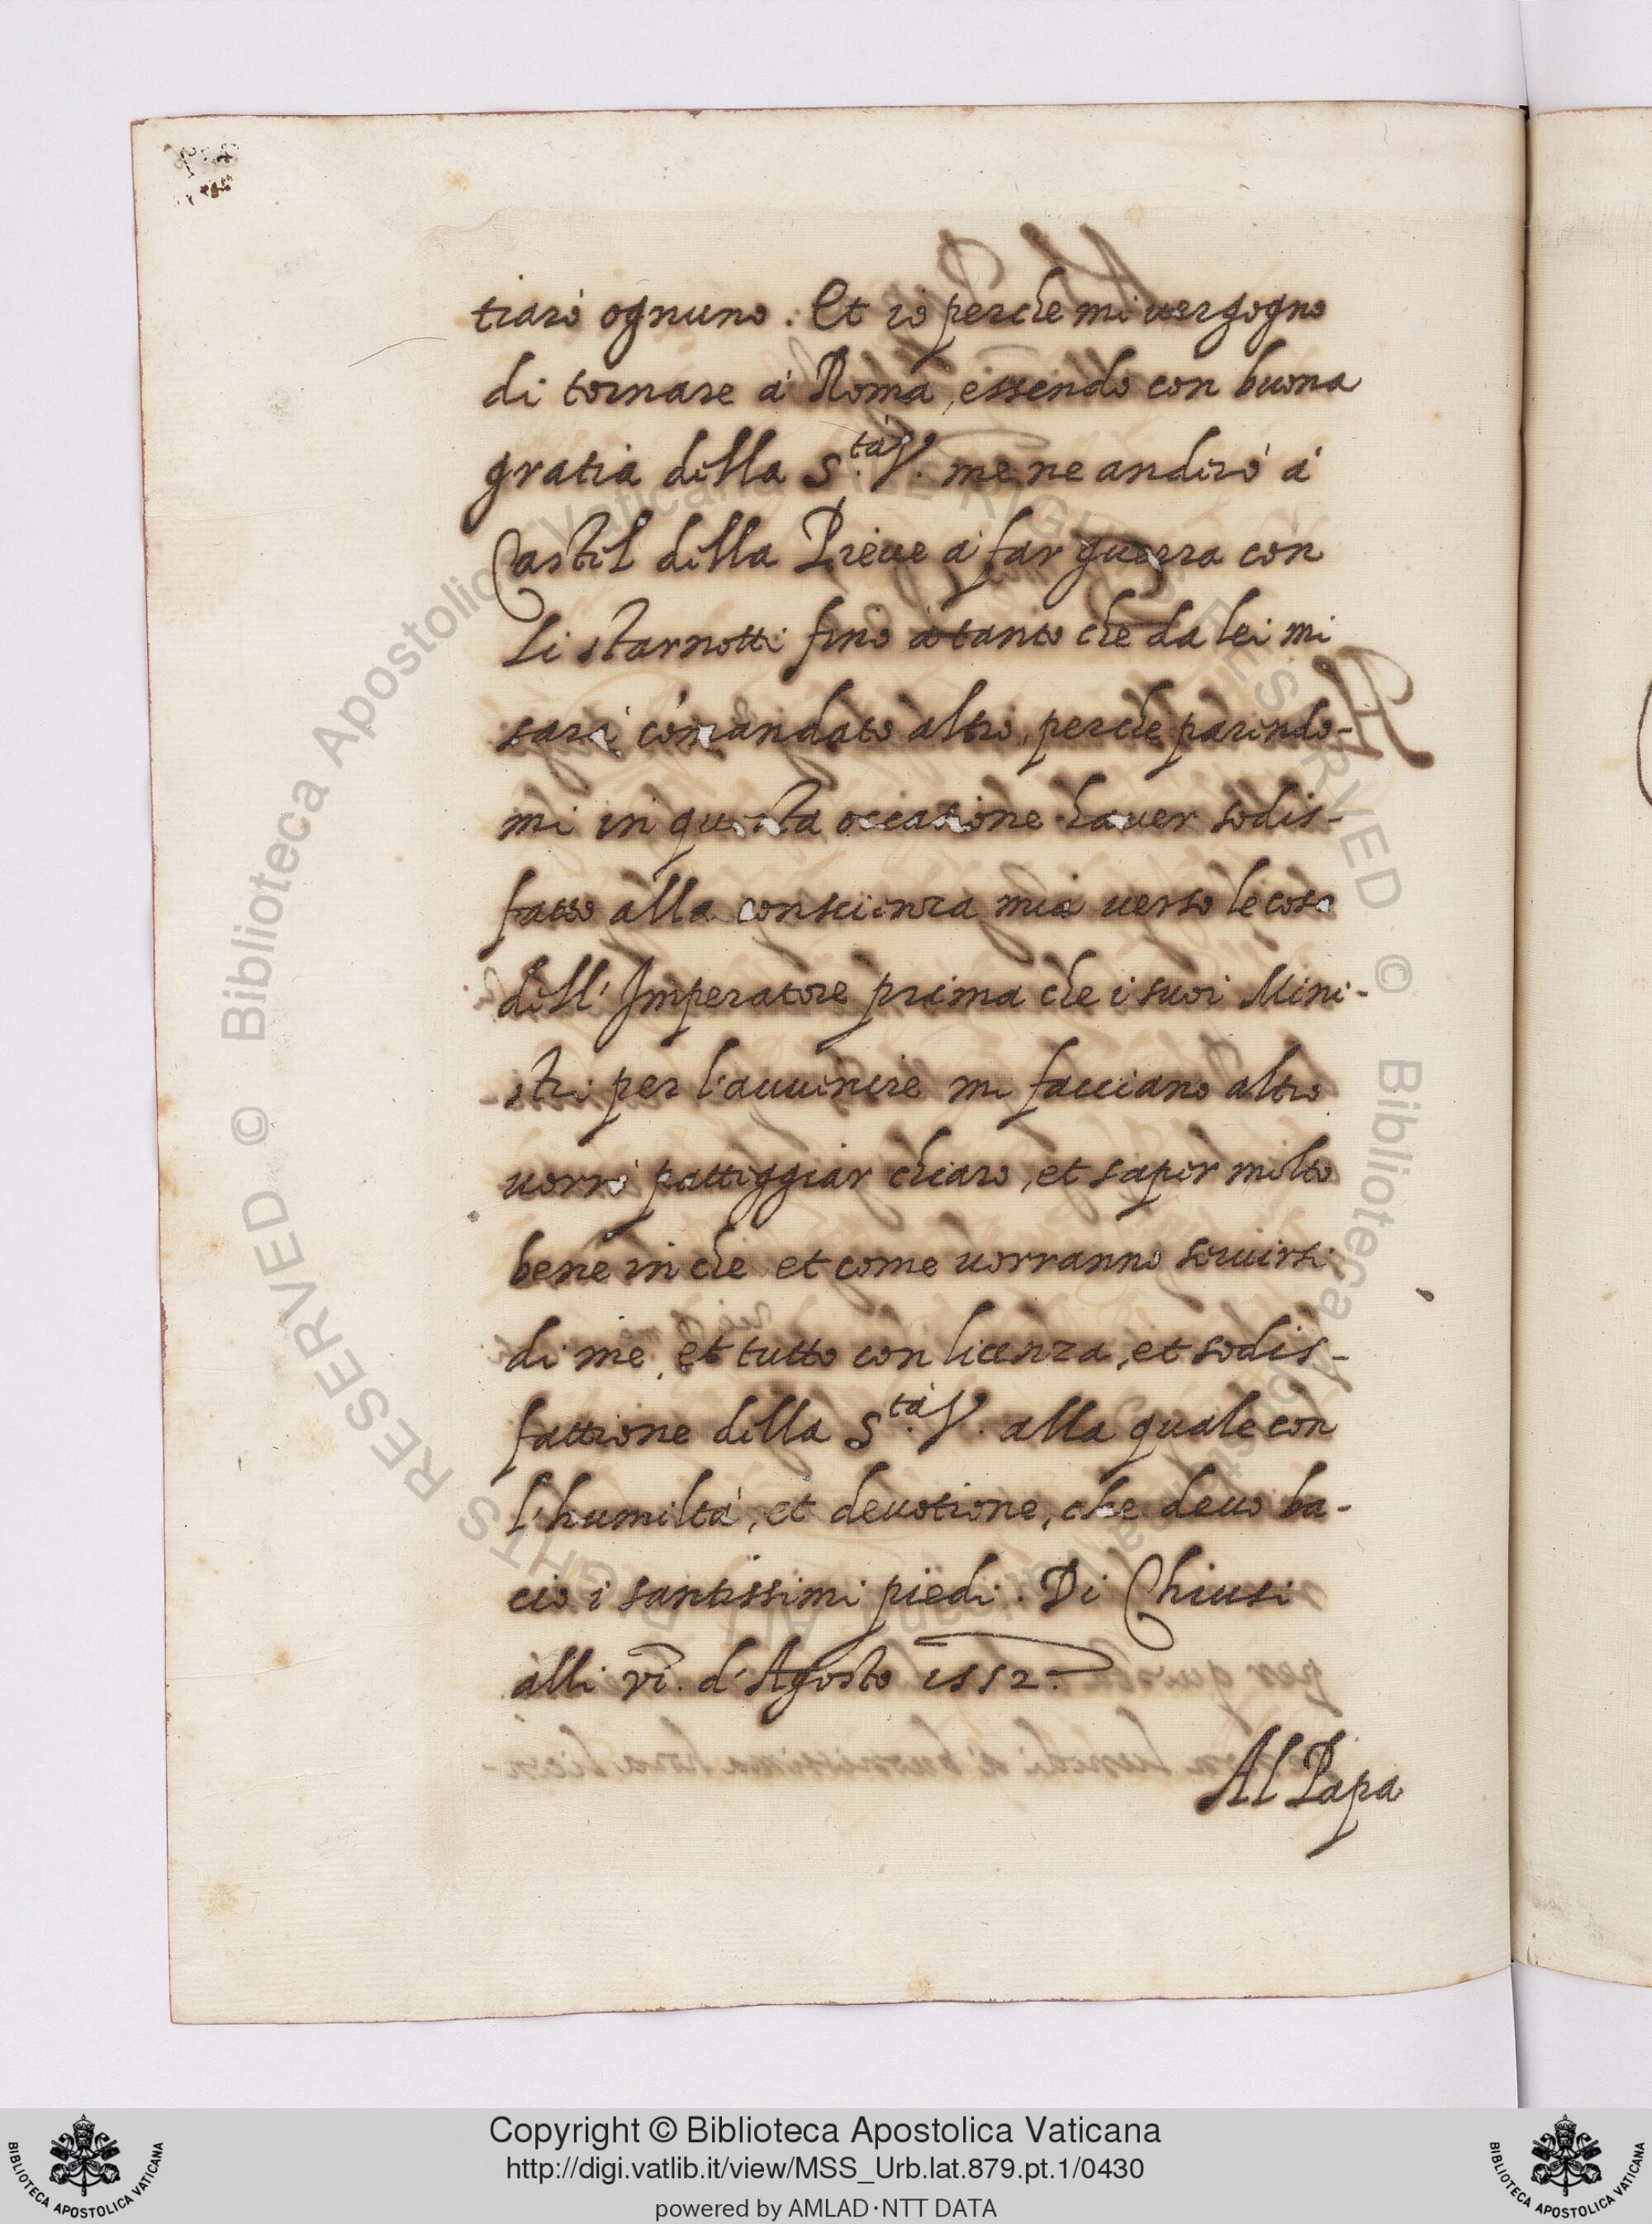 tiarò ognuno. Et io perche mi vergogno
di tornare à Roma, essendo con buona
gratia della S.tà V. me ne anderò à
Castel della Pieve à far guerra con
li starnotti fino à tanto che da lei mi
sarà comandato altro, perche parendo-
mi in questa occasione haver sodis-
fatto alla conscienza mia verso le cose
dell' Imperatore prima che i suoi Mini-
stri per l'avvenire mi facciano altro
vorrò patteggiar chiaro, et saper molto
bene in che et come vorranno servirsi
di me, et tutto con licenza, et sodis-
fattione della S.tà V. alla quale con
l'humiltà, et devotione, che devo ba-
cio i santissimi piedi. Di Chiusi
alli vi. d'Agosto 1552.
Al Papa
Copyright © Biblioteca Apostolica Vaticana
http://digi.vatlib.it/view/MSS_Urb.lat.879.pt.1/0430
powered by AMLAD·NTT DATA
BIBLIOTECA APOSTOLICA VATICANA
BIBLIOTECA APOSTOLICA VATICANA